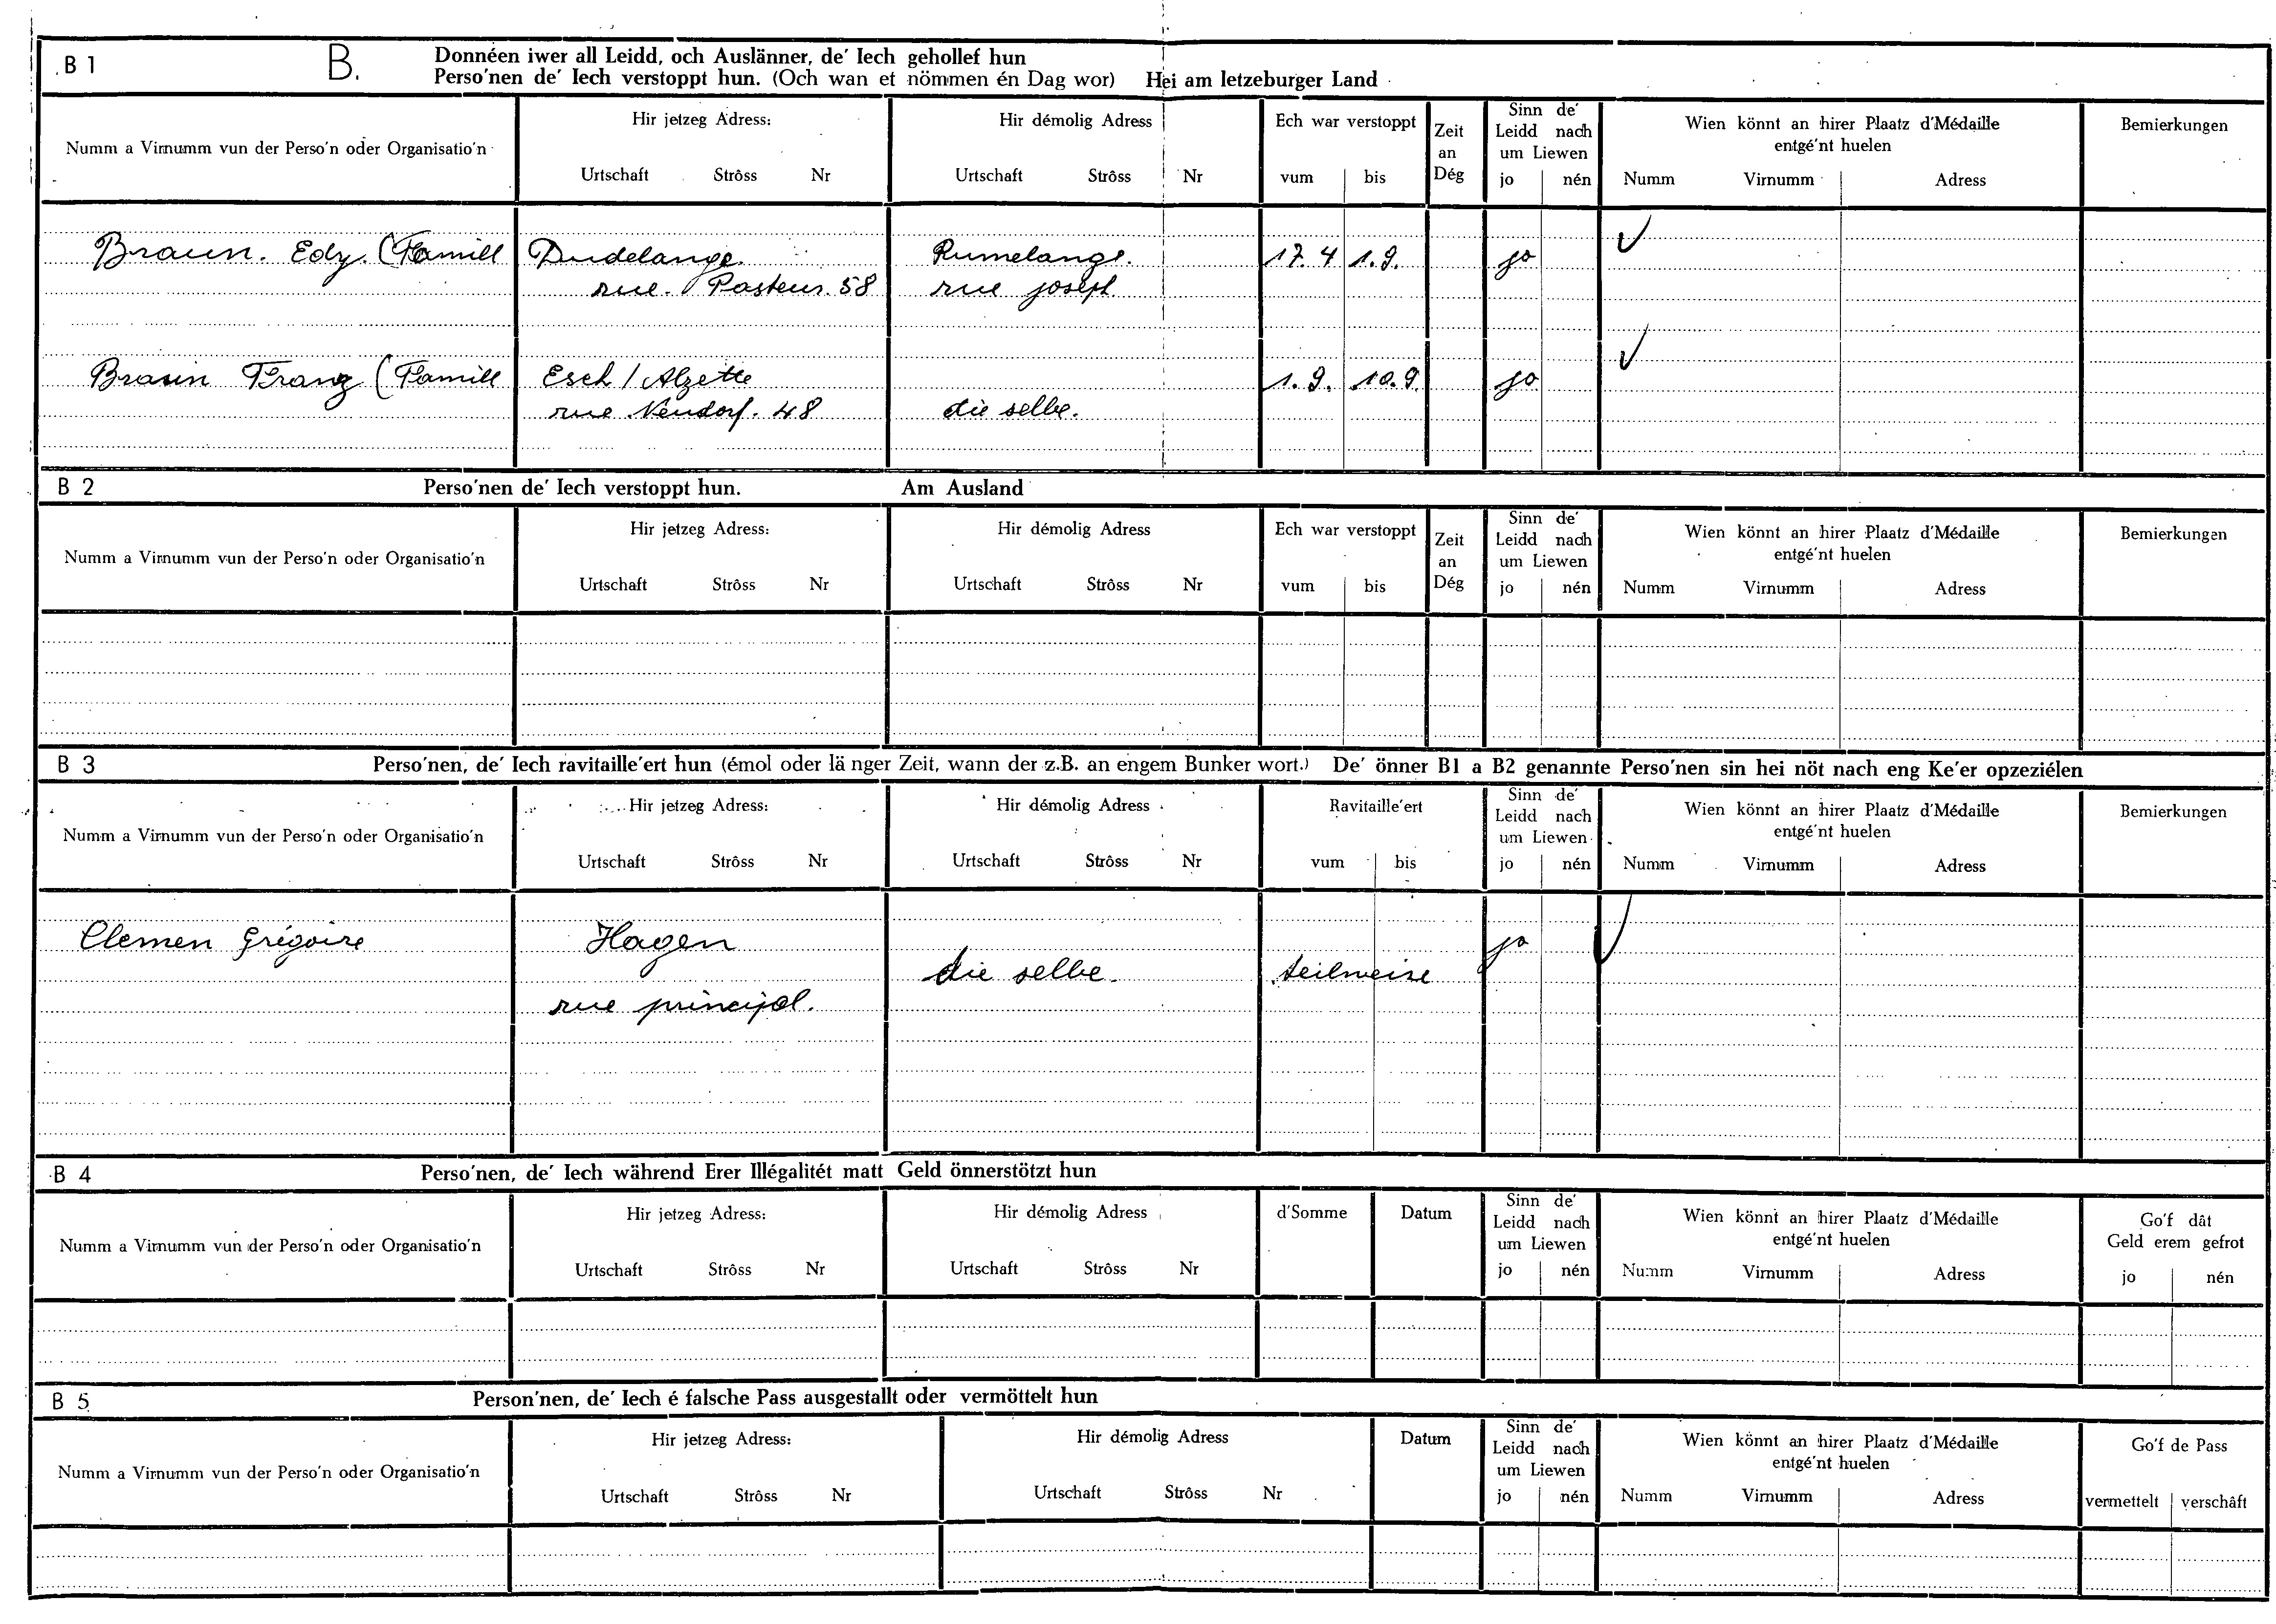 B 1 B. Donnéen iwer all Leidd, och Auslänner, de' Iech gehollef hun
Perso'nen de' Iech verstoppt hun. (Och wan et nömmen én Dag wor) Hei am letzeburger Land
Numm a Virnumm vun der Perso'n oder Organisatio'n
Hir jetzeg Adress:
Urtschaft Strôss Nr
Hir démolig Adress
Urtschaft Strôss Nr
Ech war verstoppt
vum bis
Zeit
an
Dég
Sinn de'
Leidd nach
um Liewen
jo nén
Wien könnt an hirer Plaatz d'Médaille
entgé'nt huelen
Numm Virnumm Adress
Bemierkungen
Braun. Edy. (Famill Dudelange. Rumelange. 17.4 1.9. jo
rue. Pasteur. 58 rue joseph
Braun Franz (Famill Esch / Alzette 1.9. 10.9. jo
rue Neudorf. 48 die selbe.
B 2 Perso'nen de' Iech verstoppt hun. Am Ausland
Numm a Virnumm vun der Perso'n oder Organisatio'n
Hir jetzeg Adress:
Urtschaft Strôss Nr
Hir démolig Adress
Urtschaft Strôss Nr
Ech war verstoppt
vum bis
Zeit
an
Dég
Sinn de'
Leidd nach
um Liewen
jo nén
Wien könnt an hirer Plaatz d'Médaille
entgé'nt huelen
Numm Virnumm Adress
Bemierkungen
B 3 Perso'nen, de' Iech ravitaille'ert hun (émol oder lä nger Zeit, wann der z.B. an engem Bunker wort.) De' önner B1 a B2 genannte Perso'nen sin hei nöt nach eng Ke'er opzeziélen
Numm a Virnumm vun der Perso'n oder Organisatio'n
Hir jetzeg Adress:
Urtschaft Strôss Nr
Hir démolig Adress
Urtschaft Strôss Nr
Ravitaille'ert
vum bis
Sinn de'
Leidd nach
um Liewen
jo nén
Wien könnt an hirer Plaatz d'Médaille
entgé'nt huelen
Numm Virnumm Adress
Bemierkungen
Clemen Grégoire Hagen jo
die selbe. teilweise
rue principal.
B 4 Perso'nen, de' Iech während Erer Illégalitét matt Geld önnerstötzt hun
Numm a Virnumm vun der Perso'n oder Organisatio'n
Hir jetzeg Adress:
Urtschaft Strôss Nr
Hir démolig Adress
Urtschaft Strôss Nr
d'Somme
Datum
Sinn de'
Leidd nach
um Liewen
jo nén
Wien könnt an hirer Plaatz d'Médaille
entgé'nt huelen
Numm Virnumm Adress
Go'f dât
Geld erem gefrot
jo nén
B 5 Person'nen, de' Iech é falsche Pass ausgestallt oder vermöttelt hun
Numm a Virnumm vun der Perso'n oder Organisatio'n
Hir jetzeg Adress:
Urtschaft Strôss Nr
Hir démolig Adress
Urtschaft Strôss Nr
Datum
Sinn de'
Leidd nach
um Liewen
jo nén
Wien könnt an hirer Plaatz d'Médaille
entgé'nt huelen
Numm Virnumm Adress
Go'f de Pass
vermettelt verschâft